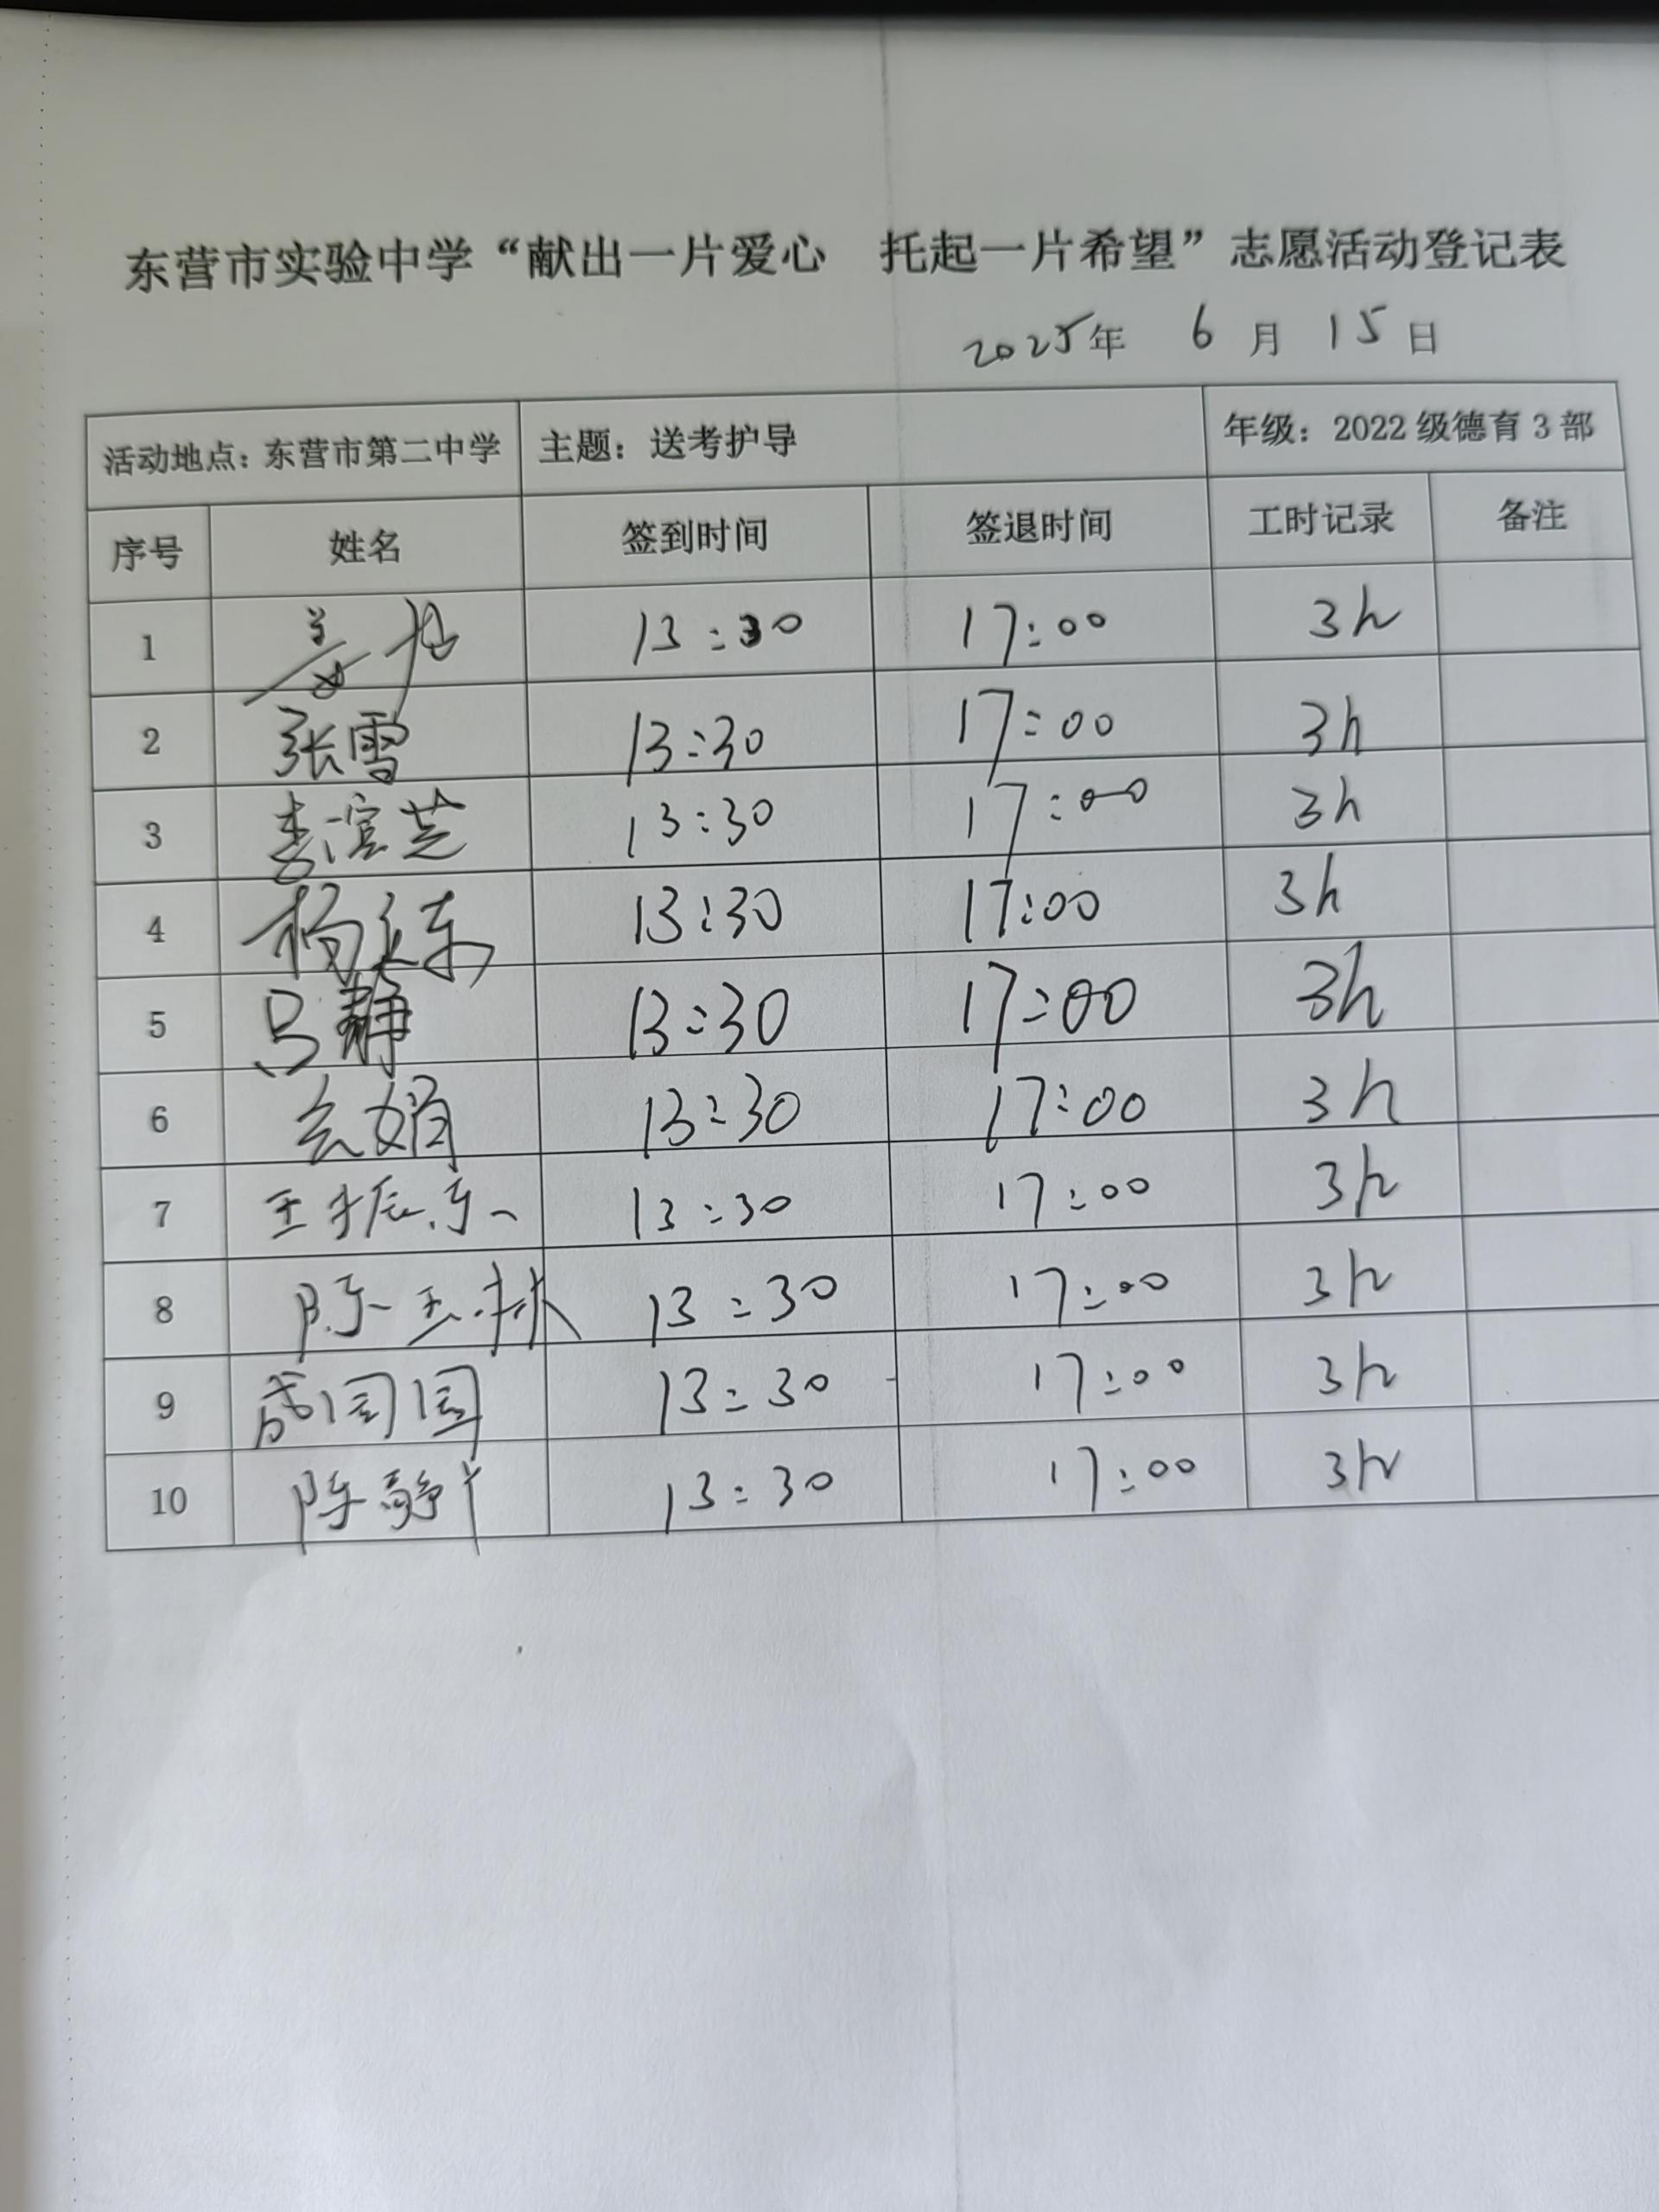 东营市实验中学“献出一片爱心 托起一片希望”志愿活动登记表
2025年 6 月 15 日
活动地点：东营市第二中学 主题：送考护导 年级：2022级德育3部
序号 姓名 签到时间 签退时间 工时记录 备注
1 13:30 17:00 3h
2 张雪 13:30 17:00 3h
3 李滨芝 13:30 17:00 3h
4 13:30 17:00 3h
5 吕静 13:30 17:00 3h
6 娟 13:30 17:00 3h
7 王振东 13:30 17:00 3h
8 陈玉林 13:30 17:00 3h
9 13:30 17:00 3h
10 陈静 13:30 17:00 3h